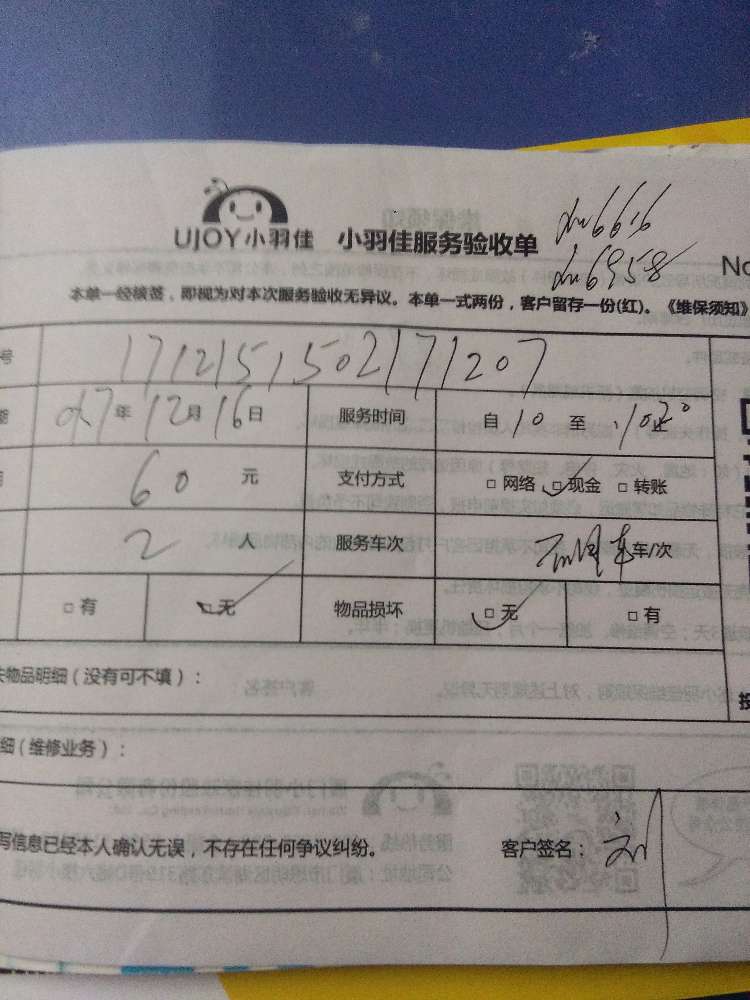 UJOY小羽佳 小羽佳服务验收单
6616
6958
No
本单一经核签，即视为对本次服务验收无异议。本单一式两份，客户留存一份(红)。《维保须知》
号 1712151502171207
年12月16日 服务时间 自10至
60元 支付方式 □网络 □现金 □转账
2人 服务车次 车/次
□有 □无 物品损坏 □无 □有
物品明细（没有可不填）：
细（维修业务）：
写信息已经本人确认无误，不存在任何争议纠纷。 客户签名：刘